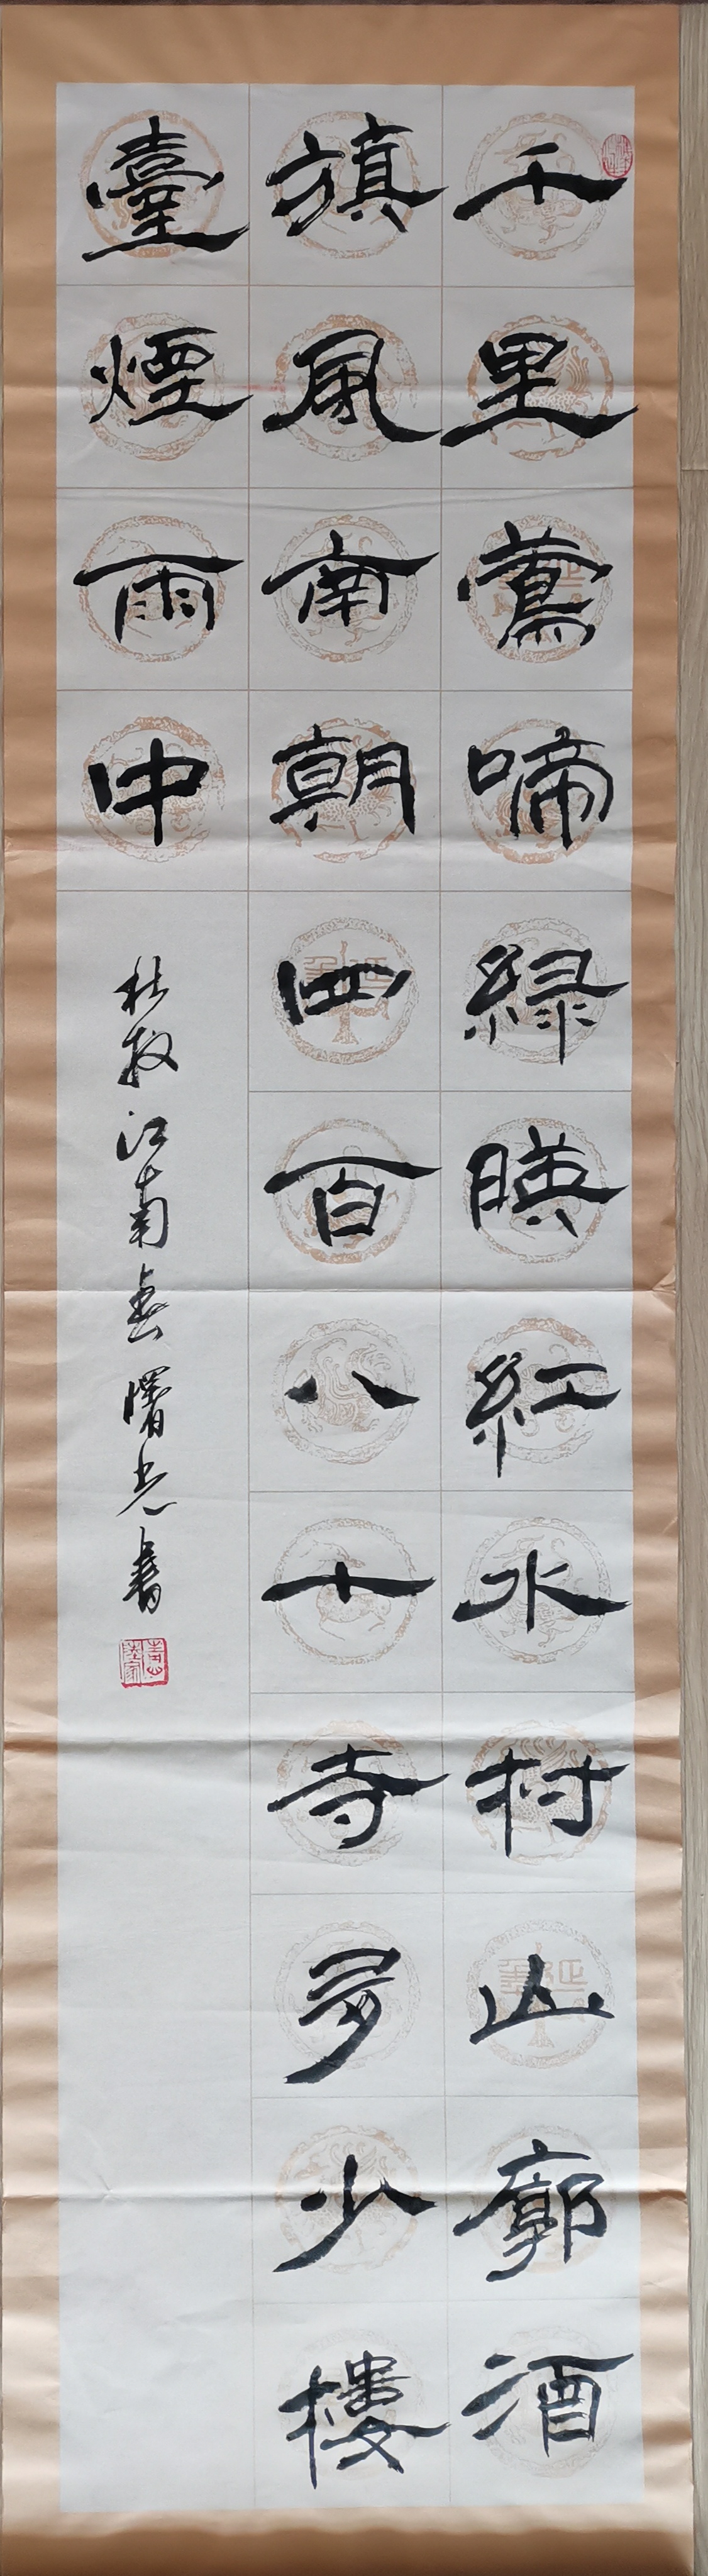 千里鶯啼緑暎紅水村山廓酒
旗風南朝四百八十寺多少樓
臺煙雨中
杜牧江南春曙光書